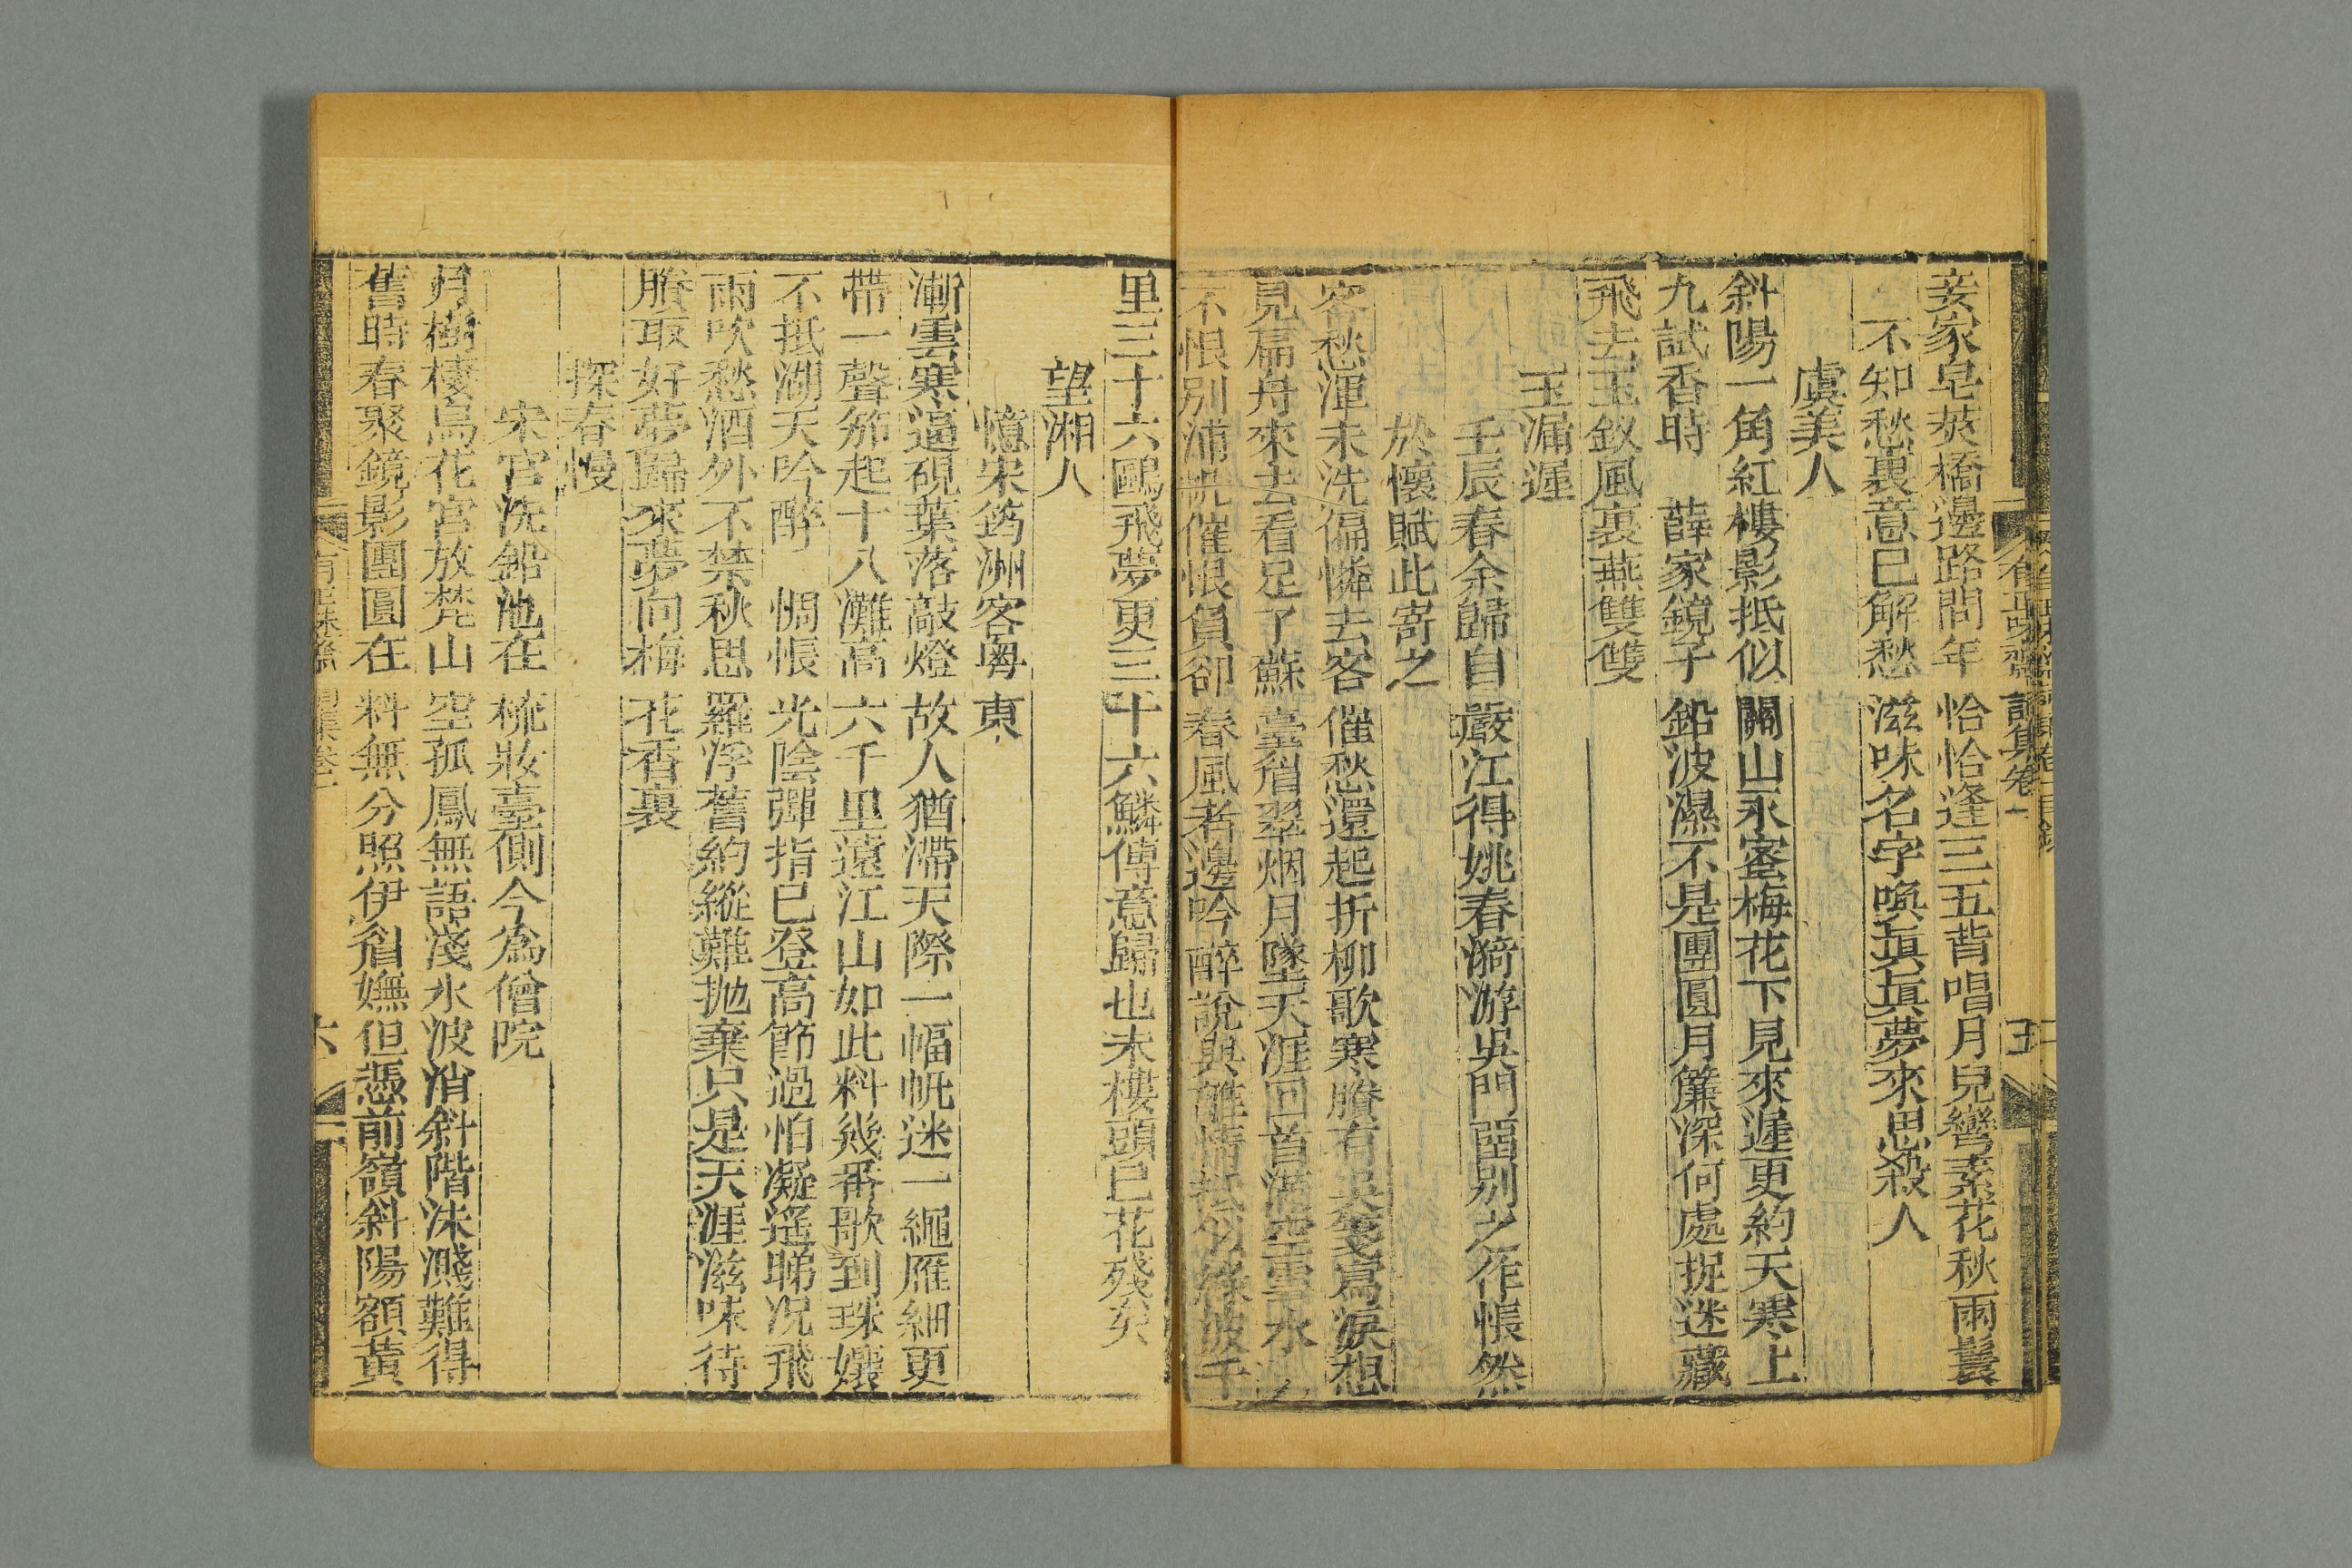 妾家皂莢橋邊路問年恰恰逢三五背唱月兒彎素花秋雨鬟
不知愁裏意已解愁滋味名字喚眞眞夢來思殺人
虞美人
斜陽一角紅樓影抵似關山永蜜梅花下見來遲更約天寒上
九試香時　薛家鏡子鉛波濕不是團圓月簾深何處捉迷藏
飛去玉釵風裏燕雙雙
玉漏遲
壬辰春余歸自嚴江得姚春漪游吳門留別之作悵然
於懷賦此寄之
客愁渾未洗偏憐去客催愁還起折柳歌寒賸有吳箋寫淚想
見扁舟來去看足了蘇臺眉翠烟月墜天涯回首滿空雲水
不恨別浦帆催恨負卻春風者邊吟醉說與離情波千
里三十六鷗飛夢更三十六鱗傳意歸也未樓頭已花殘矣
望湘人
憶宋筠洲客粵東
漸雲寒逼硯葉落敲燈故人猶滯天際一幅帆迷一繩雁細更
帶一聲笳起十八灘高六千里遠江山如此料幾番歌到珠孃
不抵湖天吟醉　惆悵光陰彈指已登高節過怕凝遙睇况飛
雨吹愁酒外不禁秋思羅浮舊約縱難抛棄只是天涯滋味待
賸取好夢歸來夢向梅花香裏
探春慢
宋官洗鉛池在梳妝臺側今爲僧院
月樹棲烏花宮放梵山空孤鳳無語淺水波消斜階沫濺難得
舊時春聚鏡影團圓在料無分照伊眉嫵但憑前嶺斜陽額黃
有正味齋
詞集卷一
五
六